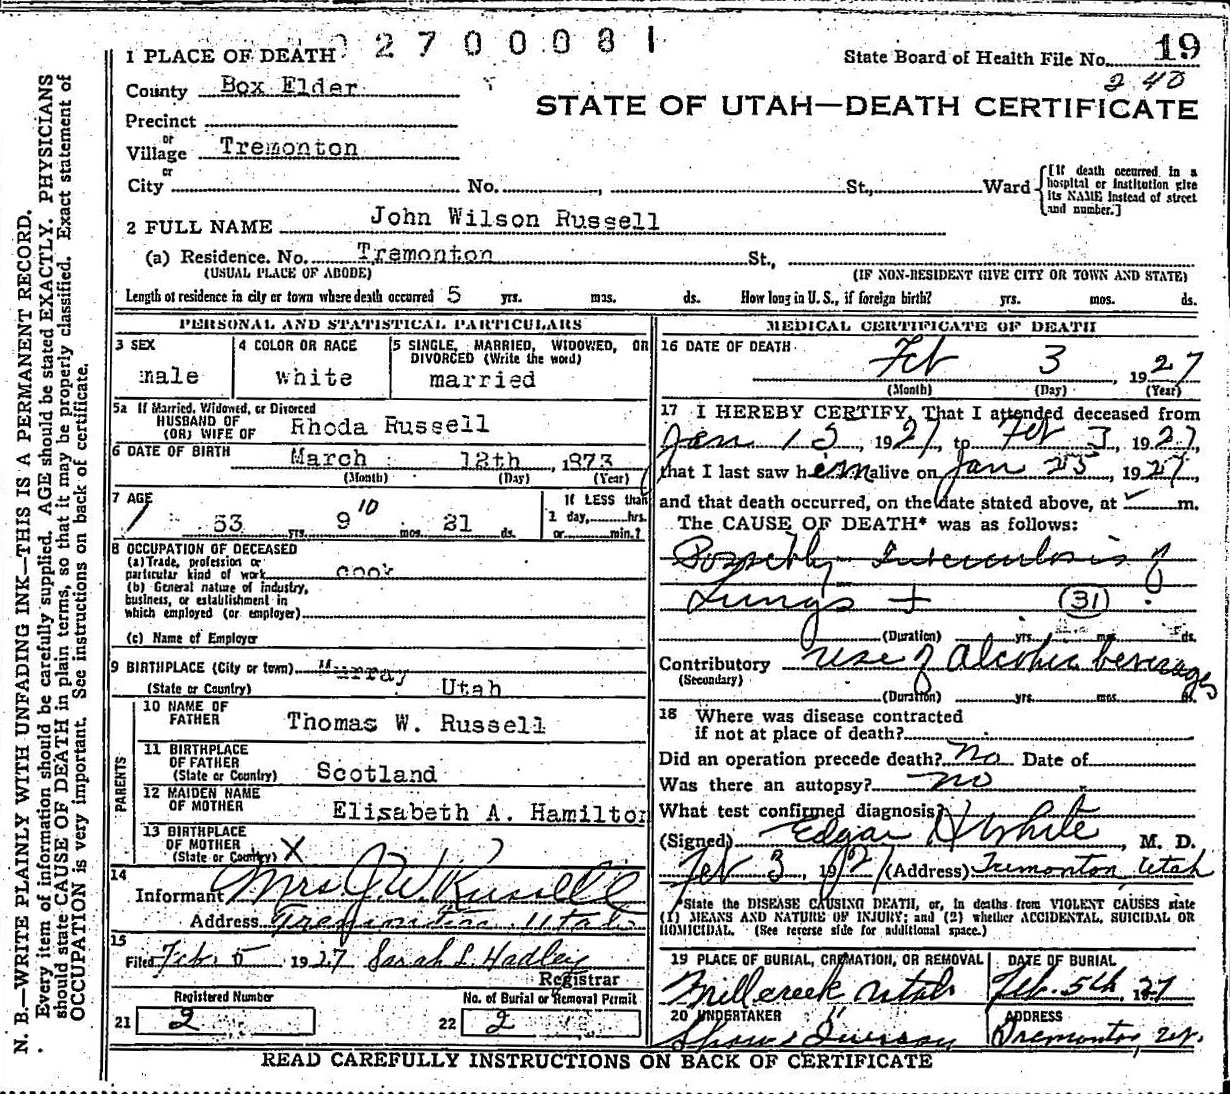 N. B.—WRITE PLAINLY WITH UNFADING INK—THIS IS A PERMANENT RECORD.
Every item of information should be carefully supplied. AGE should be stated EXACTLY. PHYSICIANS
should state CAUSE OF DEATH in plain terms, so that it may be properly classified. Exact statement of
OCCUPATION is very important. See instructions on back of certificate.
2700081
1 PLACE OF DEATH
State Board of Health File No. 19
240
County Box Elder
STATE OF UTAH—DEATH CERTIFICATE
Precinct
or
Village Tremonton
or
City No. , St., Ward
[If death occurred in a
hospital or institution give
its NAME instead of street
and number.]
2 FULL NAME John Wilson Russell
(a) Residence. No. Tremonton St.,
(USUAL PLACE OF ABODE) (IF NON-RESIDENT GIVE CITY OR TOWN AND STATE)
Length of residence in city or town where death occurred 5 yrs. mos. ds. How long in U. S., if foreign birth? yrs. mos. ds.
PERSONAL AND STATISTICAL PARTICULARS
3 SEX
male
4 COLOR OR RACE
white
5 SINGLE, MARRIED, WIDOWED, OR
DIVORCED (Write the word)
married
5a If Married, Widowed, or Divorced
HUSBAND OF
(OR) WIFE OF Rhoda Russell
6 DATE OF BIRTH March 12th , 1873
(Month) (Day) (Year)
7 AGE
53 yrs. 9 10 mos. 21 ds.
If LESS than
1 day, hrs.
or min.?
8 OCCUPATION OF DECEASED
(a) Trade, profession or
particular kind of work cook
(b) General nature of industry,
business, or establishment in
which employed (or employer)
(c) Name of Employer
9 BIRTHPLACE (City or town) Murray
(State or Country) Utah
PARENTS
10 NAME OF
FATHER Thomas W. Russell
11 BIRTHPLACE
OF FATHER
(State or Country) Scotland
12 MAIDEN NAME
OF MOTHER Elisabeth A. Hamilton
13 BIRTHPLACE
OF MOTHER
(State or Country) X ?
14
Informant Mrs J. W. Russell
Address Tremonton Utah
15
Filed Feb. 5 1927 Sarah L. Hadley
Registrar
Registered Number
21 2
No. of Burial or Removal Permit
22 2
MEDICAL CERTIFICATE OF DEATH
16 DATE OF DEATH
Feb 3 , 1927
(Month) (Day) (Year)
17 I HEREBY CERTIFY, That I attended deceased from
Jan 15, 1927, to Feb 3, 1927,
that I last saw him alive on Jan 25, 1927,
and that death occurred, on the date stated above, at m.
The CAUSE OF DEATH* was as follows:
Possibly Tuberculosis of
Lungs + (31)
(Duration) yrs. mos. ds.
Contributory use of alcoholic beverages
(Secondary)
(Duration) yrs. mos. ds.
18 Where was disease contracted
if not at place of death?
Did an operation precede death? No Date of
Was there an autopsy? no
What test confirmed diagnosis?
(Signed) Edgar H White, M. D.
Feb 3, 1927 (Address) Tremonton, Utah
*State the DISEASE CAUSING DEATH, or, in deaths from VIOLENT CAUSES state
(1) MEANS AND NATURE OF INJURY; and (2) whether ACCIDENTAL, SUICIDAL OR
HOMICIDAL. (See reverse side for additional space.)
19 PLACE OF BURIAL, CREMATION, OR REMOVAL
Millcreek Utah
DATE OF BURIAL
Feb. 5th, 1927
20 UNDERTAKER
ADDRESS
Tremonton, Ut.
READ CAREFULLY INSTRUCTIONS ON BACK OF CERTIFICATE